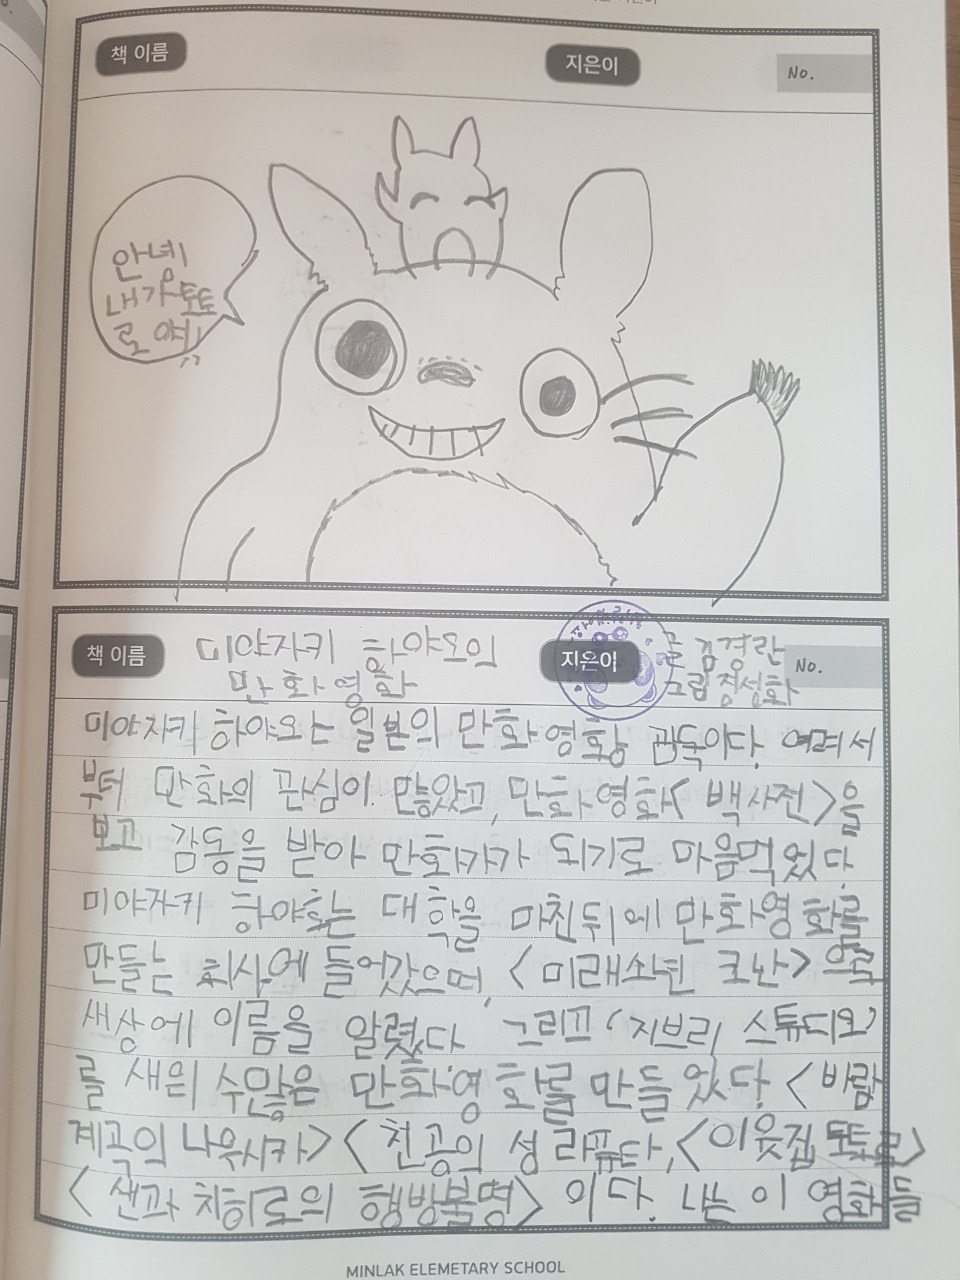 책 이름
지은이
No.
안녕
내가 토토
로 야!!
책 이름
미야자키 하야오의
만화영화
지은이
글 김경란
그림 정성화
No.
미야자키 하야오는 일본의 만화영화 감독이다. 어려서
부터 만화의 관심이 많았고, 만화 영화<백사전>을
보고 감동을 받아 만화가가 되기로 마음먹었다.
미야자키 하야오는 대학을 마친뒤에 만화영화를
만들는 회사에 들어갔으며, <미래소년 코난>으로
새상에 이름을 알렸다 그리고 '지브리 스튜디오'
를 새워 수많은 만화 영화를 만들었다. <바람
계곡의 나우시카> <천공의 성 라퓨타, <이웃집 토토로>
<샌과 치히로의 행방불명> 이다. 나는 이 영화들
MINLAK ELEMETARY SCHOOL